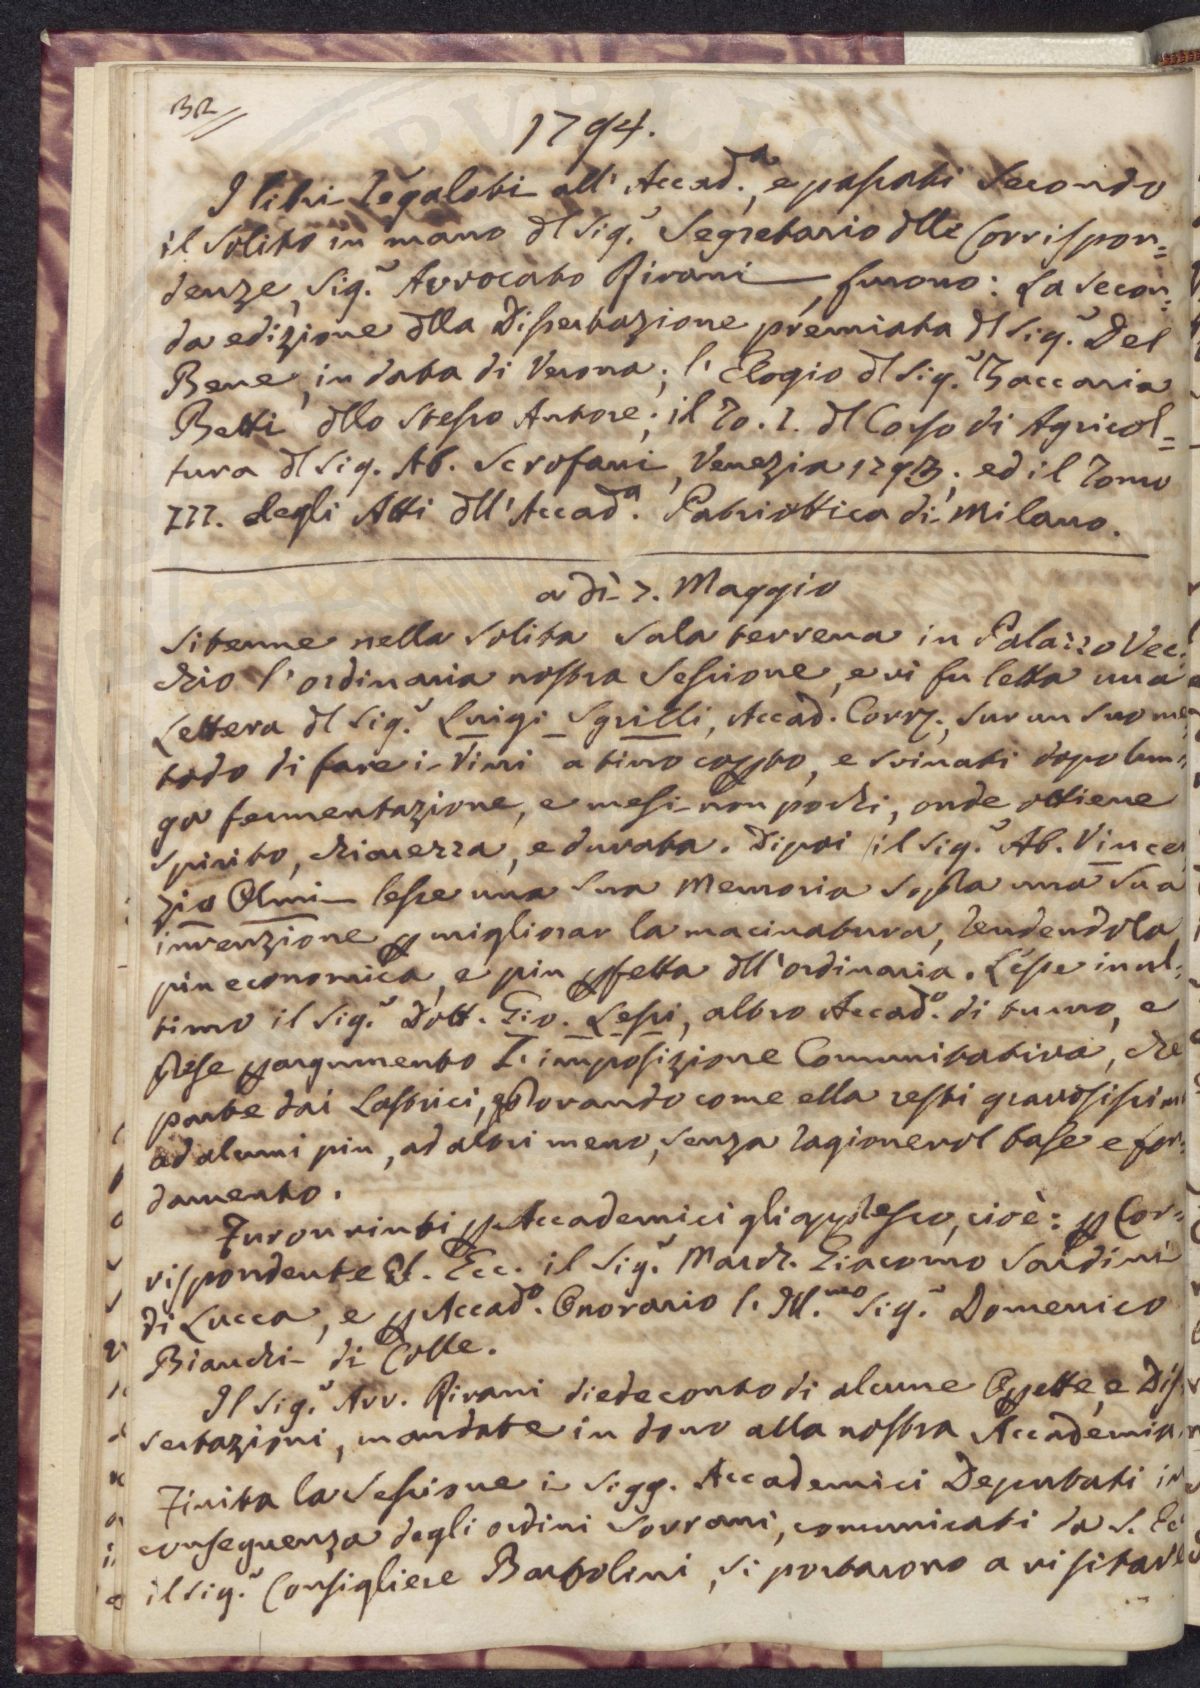 32
1794.
I libri regalati all' Accad.a, e passati secondo
il solito in mano dl Sig.r Segretario dlle Corrispon=
denze, Sig.r Avvocato Rivani, furono: La secon=
da edizione dlla Dissertazione premiata dl Sig.r Del
Bene, in data di Verona; l' Elogio dl Sig.r Zaccaria
Betti dllo stesso Autore; il To. I. dl Corso di Agricol=
tura dl Sig. Ab. Scrofani, Venezia 1793; ed il Tomo
III. degli Atti dll' Accad.a Patriottica di Milano.
a dì 7. Maggio
Si tenne nella solita sala terrena in Palazzo Vec=
chio l' ordinaria nostra Sessione, e vi fu letta una
Lettera dl Sig.r Luigi Sgrilli, Accad. Corr., sur un suo me
todo di fare i vini a tino coperto, e svinati dopo lun=
ga fermentazione, e mesi non pochi, onde ottiene
spirito, chiarezza, e durata. Dipoi il Sig.r Ab. Vincen
zio Olmi lesse una sua Memoria sopra una sua
invenzione p migliorar la macinatura, rendendola
più economica, e più pfetta dll' ordinaria. Lesse in ul=
timo il Sig.r Dott. Gio. Lessi, altro Accad.o di turno, e
prese p argumento L' imposizione Comunitativa, che
parte dai Lastrici, plorando come ella resti gravosissima
ad alcuni più, ad altri meno, senza ragionevol base e fon=
damento.
Furon vinti p Accademici gli appresso, cioè: p Cor=
rispondente S. Ecc. il Sig.r March. Giacomo Sardini
di Lucca, e p Accad.o Onorario l' Ill.mo Sig.r Domenico
Bianchi di Colle.
Il Sig.r Avv. Rivani diede conto di alcune Operette, e Dis
sertazioni, mandate in dono alla nostra Accademia.
Finita la Sessione i Sigg. Accademici Deputati in
conseguenza degli ordini Sovrani, comunicati da S. Ec
il Sig.r Consigliere Bartolini, si portarono a visitare